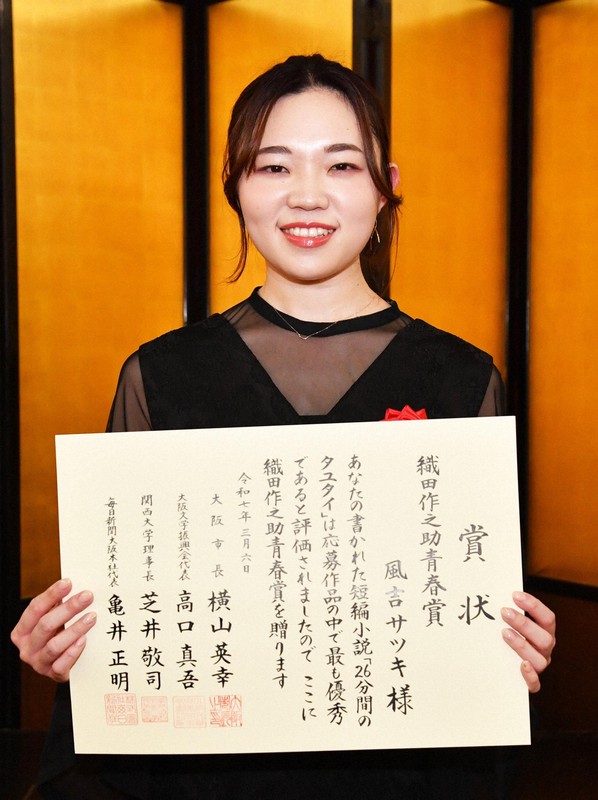 賞状
織田作之助青春賞
風吉サツキ様
あなたの書かれた短編小説「26分間の
タユタイ」は応募作品の中で最も優秀
であると評価されましたので ここに
織田作之助青春賞を贈ります
令和七年三月六日
大阪市長 横山英幸
大阪文学振興会代表 高口真吾
関西大学理事長 芝井敬司
毎日新聞大阪本社代表 亀井正明